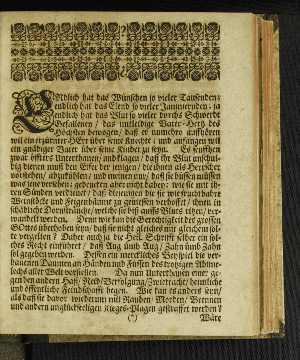 Endlich hat das Wünschen so vieler Tausenden/
endlich hat das Elend so vieler Jammernden/ ja
endlich hat das Blut so vieler durchs Schwerdt
Gefallenen/ das mitleidige Vater-Hertz des
Höchsten bewogen/ daß er numehro auffhören
wil ein erzürnter HErr über seine Knechte/ und anfangen wil
ein gnädiger Vater über seine Kinder zu seyn. Es seufftzen
zwar öffters Unterthanen/ und klagen/ daß ihr Blut unschul-
dig dienen muß den Eifer der jenigen/ die ihnen als Herrscher
vorstehen/ abzukühlen/ und meinen nur/ daß sie büssen müssen
was jene versehen; gedencken aber nicht dabey: wie sie mit ih-
ren Sünden verdienet/ daß diejenigen die sie wie fruchtbahre
Weinstöcke und Feigenbäume zu geniessen verhoffet/ ihnen in
schädliche Dornsträuche/ welche sie biß auffs Blut ritzen/ ver-
wandelt werden. Denn wie kan die Gerechtigkeit des grossen
GOttes überhoben seyn/ daß sie nicht gleiches mit gleichem sol-
te vergelten? Daher auch ja die Heil. Schrifft selber ein sol-
ches Recht einführet/ daß Aug umb Aug/ Zahn umb Zahn
sol gegeben werden. Dessen ein mercklisches Beyspiel die ver-
hauenen Daumen an Händen und Füssen des trotzigen Adoni-
bechs aller Welt vorstellen. Da nun Unterthanen einer ge-
gen den andern Haß/ Neid/ Verfolgung/ Zwietracht/ heimliche
und öffentliche Feindschafft hegen. Wie kan es anders seyn/
als daß sie davor wiederum mit Rauben/ Morden/ Brennen
und andern unglückseeligen Krieges-Plagen gestraffet werden?
(*) Wäre